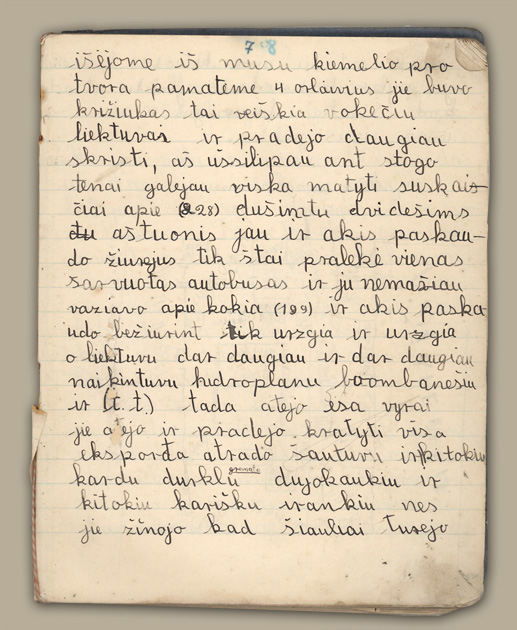 7-8
išėjome iš musu kiemelio pro
tvora pamatėme 4 orlaivius jie buvo
križiukas tai reiškia vokečiu
liektuvai ir pradejo daugiau
skristi, aš ussilipau ant stogo
tenai galėjau viska matyti suskai-
čiai apie (228) dušimtu dvidešims
aštuonis jau ir akis paskau-
do žiurejus tik štai pralekė vienas
šarvuotas autobusas ir ju nemažiau
vaziavo apie kokia (199) ir akis paska
udo bežiurint tik urzgia ir urzgia
o liektuvu dar daugiau ir dar daugiau
naikintuvu hidroplanu boombanešiu
ir (t.t) tada atejo ėsa vyrai
jie atejo ir pradejo kratyti visa
eksporta atrado šautuvu ir kitokiu
kardu durklu granatu dujokaukiu ir
kitokiu karišku irankiu nes
jie žinojo kad šiauliai turejo